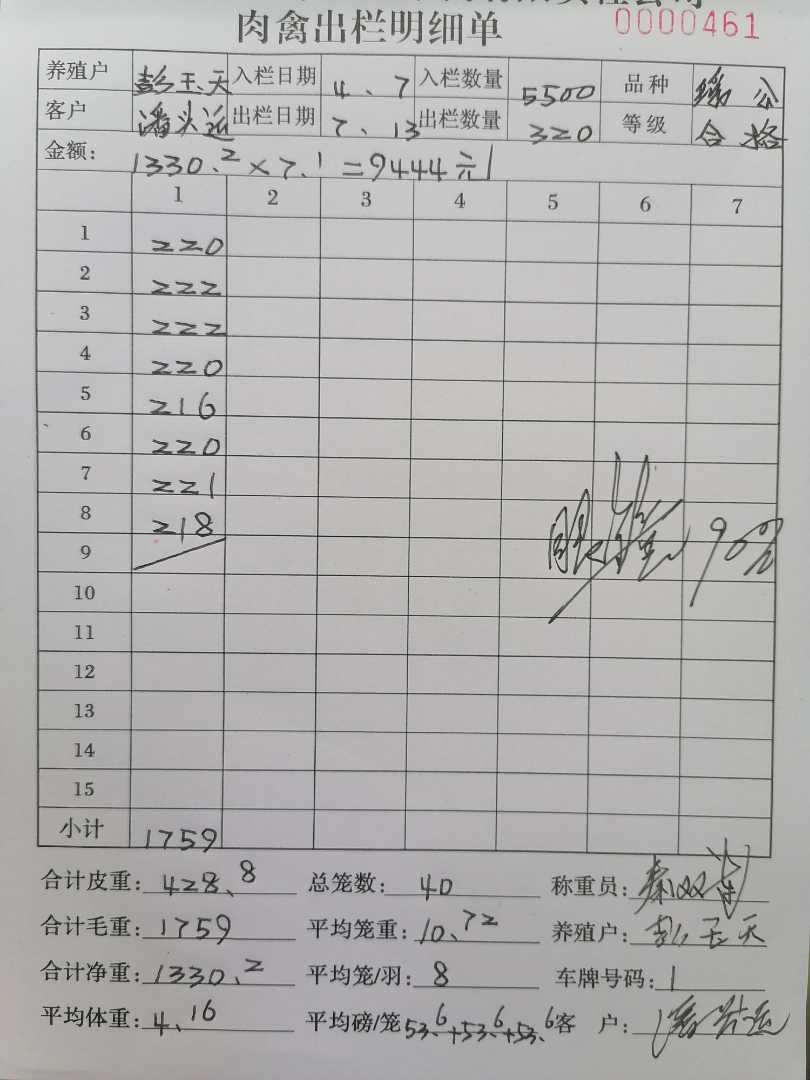 肉禽出栏明细单 0000461
养殖户 彭玉天 入栏日期 4、7 入栏数量 5500 品种 公
客户 潘 运 出栏日期 7、13 出栏数量 320 等级 合格
金额: 1330.2×7.1=9444元
1 2 3 4 5 6 7
1 220
2 222
3 222
4 220
5 216
6 220
7 221
8 218
9
10
11
12
13
14
15
小计 1759
合计皮重: 428、8 总笼数: 40 称重员: 秦双
合计毛重: 1759 平均笼重: 10、72 养殖户: 彭玉天
合计净重: 1330、2 平均笼/羽: 8 车牌号码: 1
平均体重: 4、16 平均磅/笼 53.6+53.6+53.6 客 户: